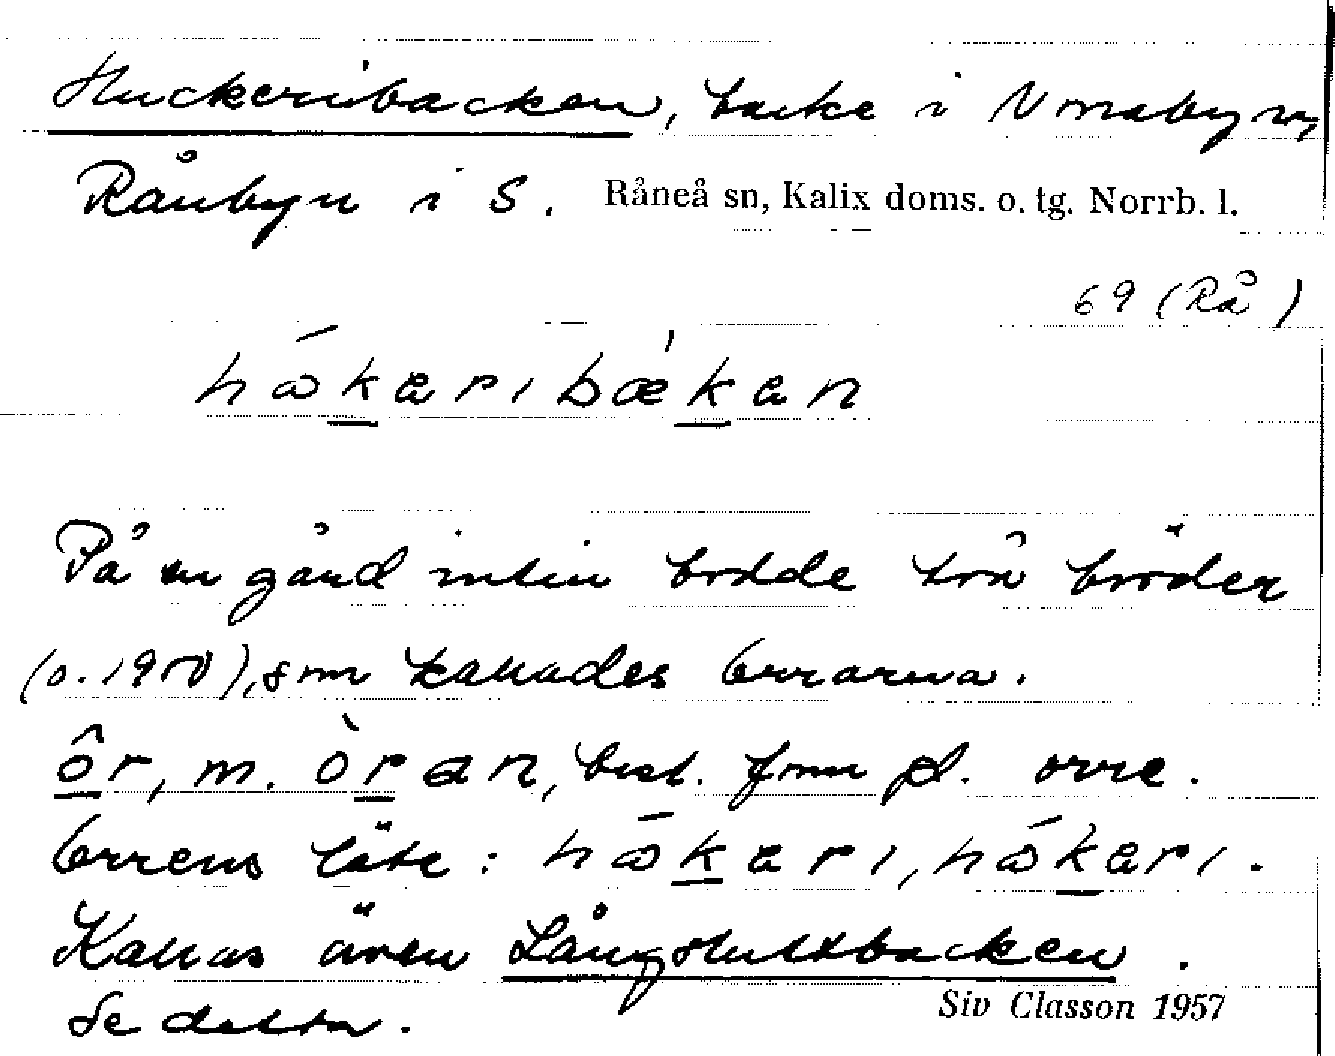 Huckeribacken, backe i Ornabyn,
Rånbyn i S. Råneå sn, Kalix doms. o. tg. Norrb. l.
69 (Rå)
håkaribækan
På en gård intill bodde två bröder
(o. 1950), som kallades Orrarna.
ôr, m. òran, best. form pl. orre.
Orrens läte: håkari, håkari.
Kallas även Långsluttbacken.
Se detta.
Siv Classon 1957